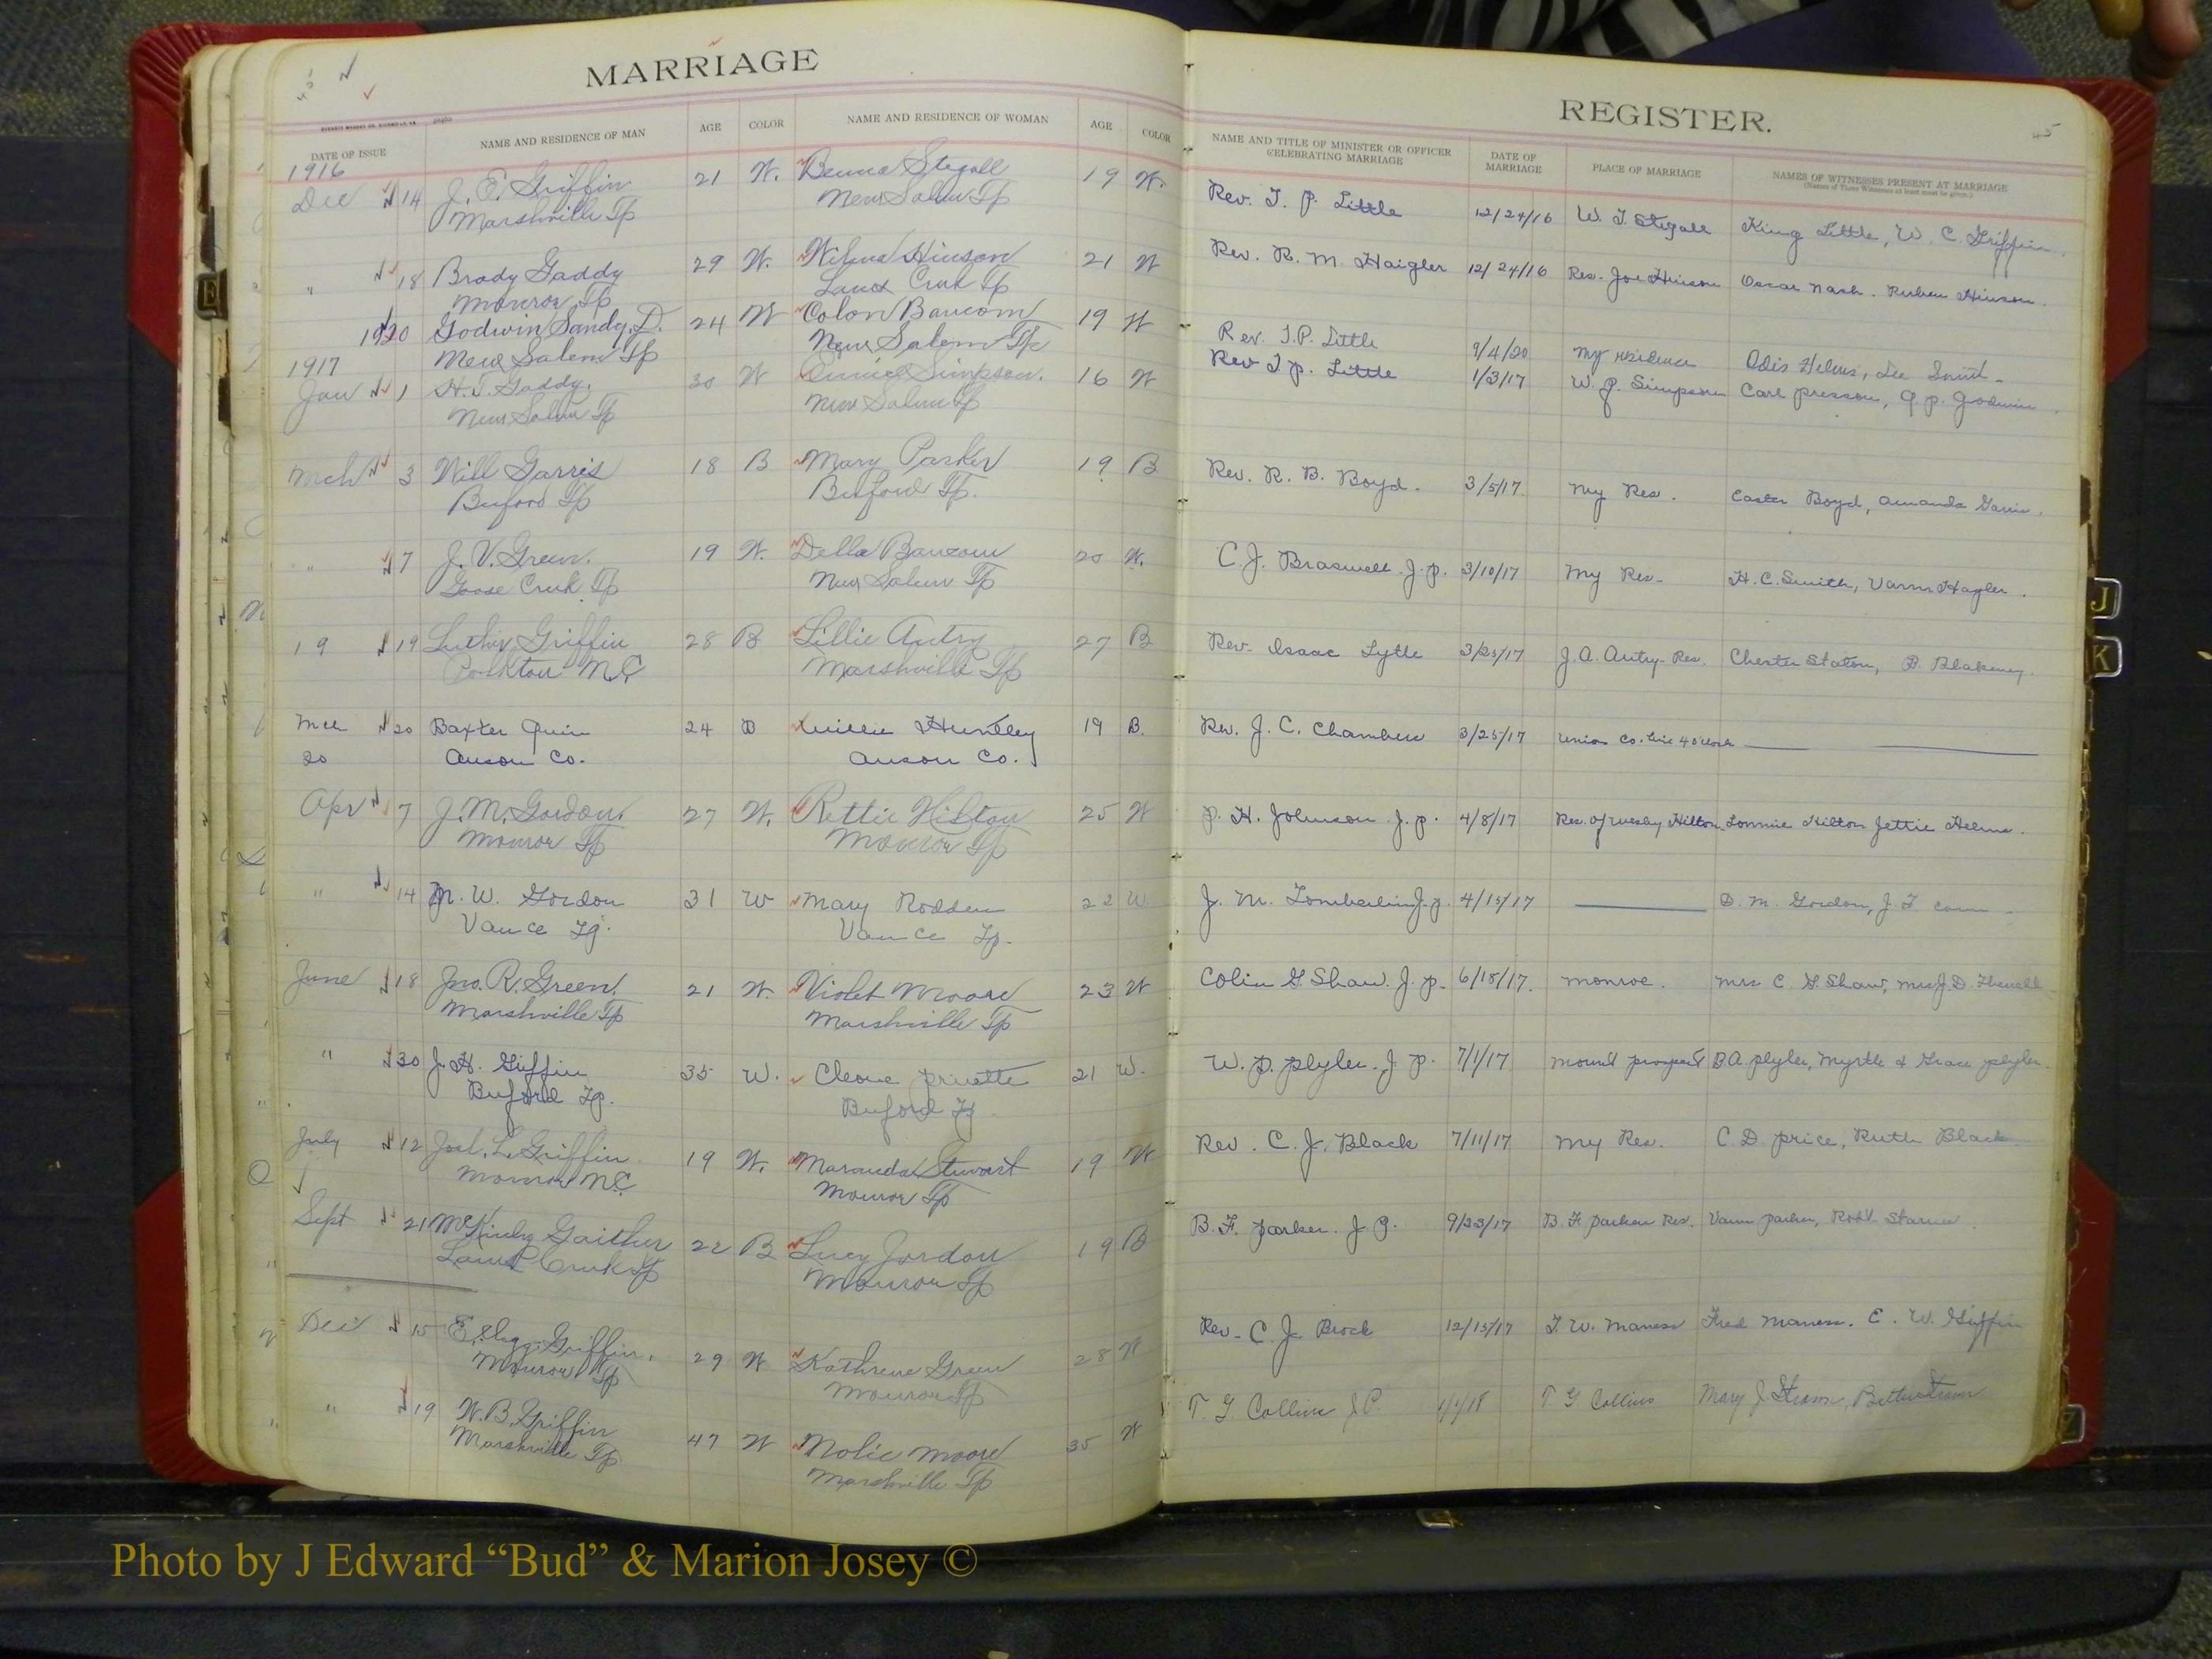 MARRIAGE
REGISTER.
45
DATE OF ISSUE NAME AND RESIDENCE OF MAN AGE COLOR NAME AND RESIDENCE OF WOMAN AGE COLOR
NAME AND TITLE OF MINISTER OR OFFICER CELEBRATING MARRIAGE DATE OF MARRIAGE PLACE OF MARRIAGE NAMES OF WITNESSES PRESENT AT MARRIAGE
(Names of Three Witnesses at least must be given.)
1916
Dec 14 J. E. Griffin 21 W. Stegall 19 W. Rev. J. P. Little 12/24/16 W. J. Stegall King Little, W. C. Griffin
Marshville Tp New Salem Tp
" 18 Brady Gaddy 29 W. Wilma Hinson 21 W Rev. R. M. Haigler 12/24/16 Res. Joe Hinson Oscar Nash. Ruben Hinson.
Monroe Tp Lanes Creek Tp
1920 Godwin Sandy. D. 24 W Colon Baucom 19 W Rev. J. P. Little 9/4/20 My residence Odis Helms, Lee
New Salem Tp New Salem Tp
1917
Jan 1 H. J. Gaddy. 30 W Eunice Simpson. 16 W Rev J. P. Little 1/3/17 W. P. Simpson Carl Presson, Godwin
New Salem Tp New Salem Tp
Mch 3 Will Garris 18 B Mary Parker 19 B Rev. R. B. Boyd. 3/5/17 My Res. Boyd, Amanda
Buford Tp Buford Tp.
" 7 J. V. Green. 19 W. Della Baucom 20 W. C. J. Braswell J. P. 3/10/17 My Res- H. C. Smith, Vann Hagler.
Goose Creek Tp New Salem Tp
19 19 Luther Griffin 28 B Lillie Autry 27 B Rev. Isaac Lytle 3/25/17 J. A. Autry Res. Chester Staton, B. Blakeney.
Polkton N.C. Marshville Tp
Mch 20 Baxter Quin 24 B Willie Huntley 19 B. Rev. J. C. Chambers 3/25/17 Union Co. line 4 o'clock
20 Anson Co. Anson Co.
Apr 7 J. M. Gordon. 27 W. Rettie Hilton 25 W P. H. Johnson J. P. 4/8/17 Res. of Wesley Hilton Lonnie Hilton Jettie Helms.
Monroe Tp Monroe Tp
" 14 M. W. Gordon 31 W Mary Rodden 22 W. J. M. Lomberlin J. P. 4/15/17 D. M. Gordon, J. F.
Vance Tp. Vance Tp.
June 18 Jno. R. Green. 21 W. Violet Moore 23 W Colin G Shaw. J. P. 6/18/17. Monroe. Mrs C. G. Shaw, Mrs J. D.
Marshville Tp Marshville Tp
" 30 J. H. Griffin 35 W. Cleone Privette 21 W. W. P. Plyler. J. P. 7/1/17 Mount Prospect B A. Plyler, Myrtle & Grace Plyler.
Buford Tp. Buford Tp
July 12 L. Griffin 19 W. Maranda Stewart 19 W Rev. C. J. Black 7/11/17 My Res. C. D. Price, Ruth Black
Monroe N.C. Monroe Tp
Sept 21 Gaither 22 B Lucy Jordon 19 B B. F. Parker. J. P. 9/23/17 B. F. Parker Res. Vann Parker, Starnes
Lanes Creek Tp Monroe Tp
Dec 15 Griffin. 29 W Kathrene Green 28 W Rev. C. J. 12/15/17 T. W. Maness Fred Maness. E. W. Griffin
Monroe Tp Monroe Tp
" 19 W. B. Griffin 47 W Molie Moore 35 W T. G Collins J P. 1/1/18 T G Collins Mary J
Marshville Tp Marshville Tp
E
J
K
Photo by J Edward “Bud” & Marion Josey ©